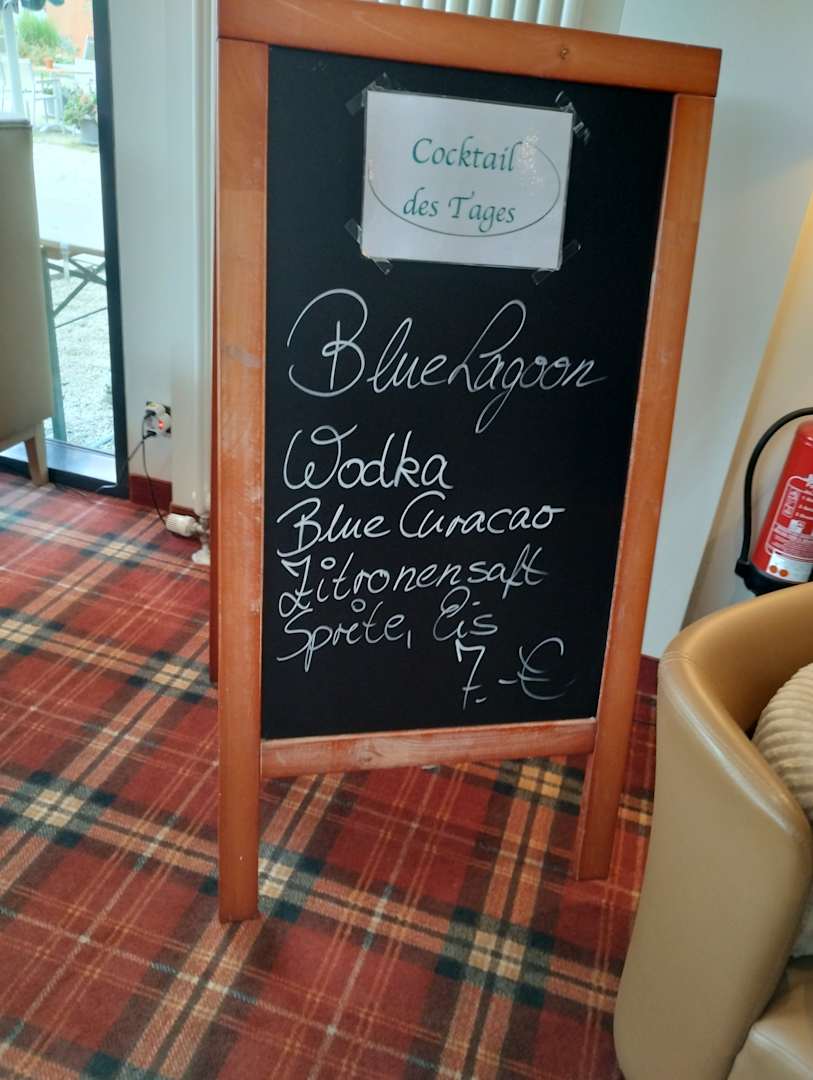 Cocktail
des Tages
Blue Lagoon
Wodka
Blue Curacao
Zitronensaft
Sprite, Eis
7.-€